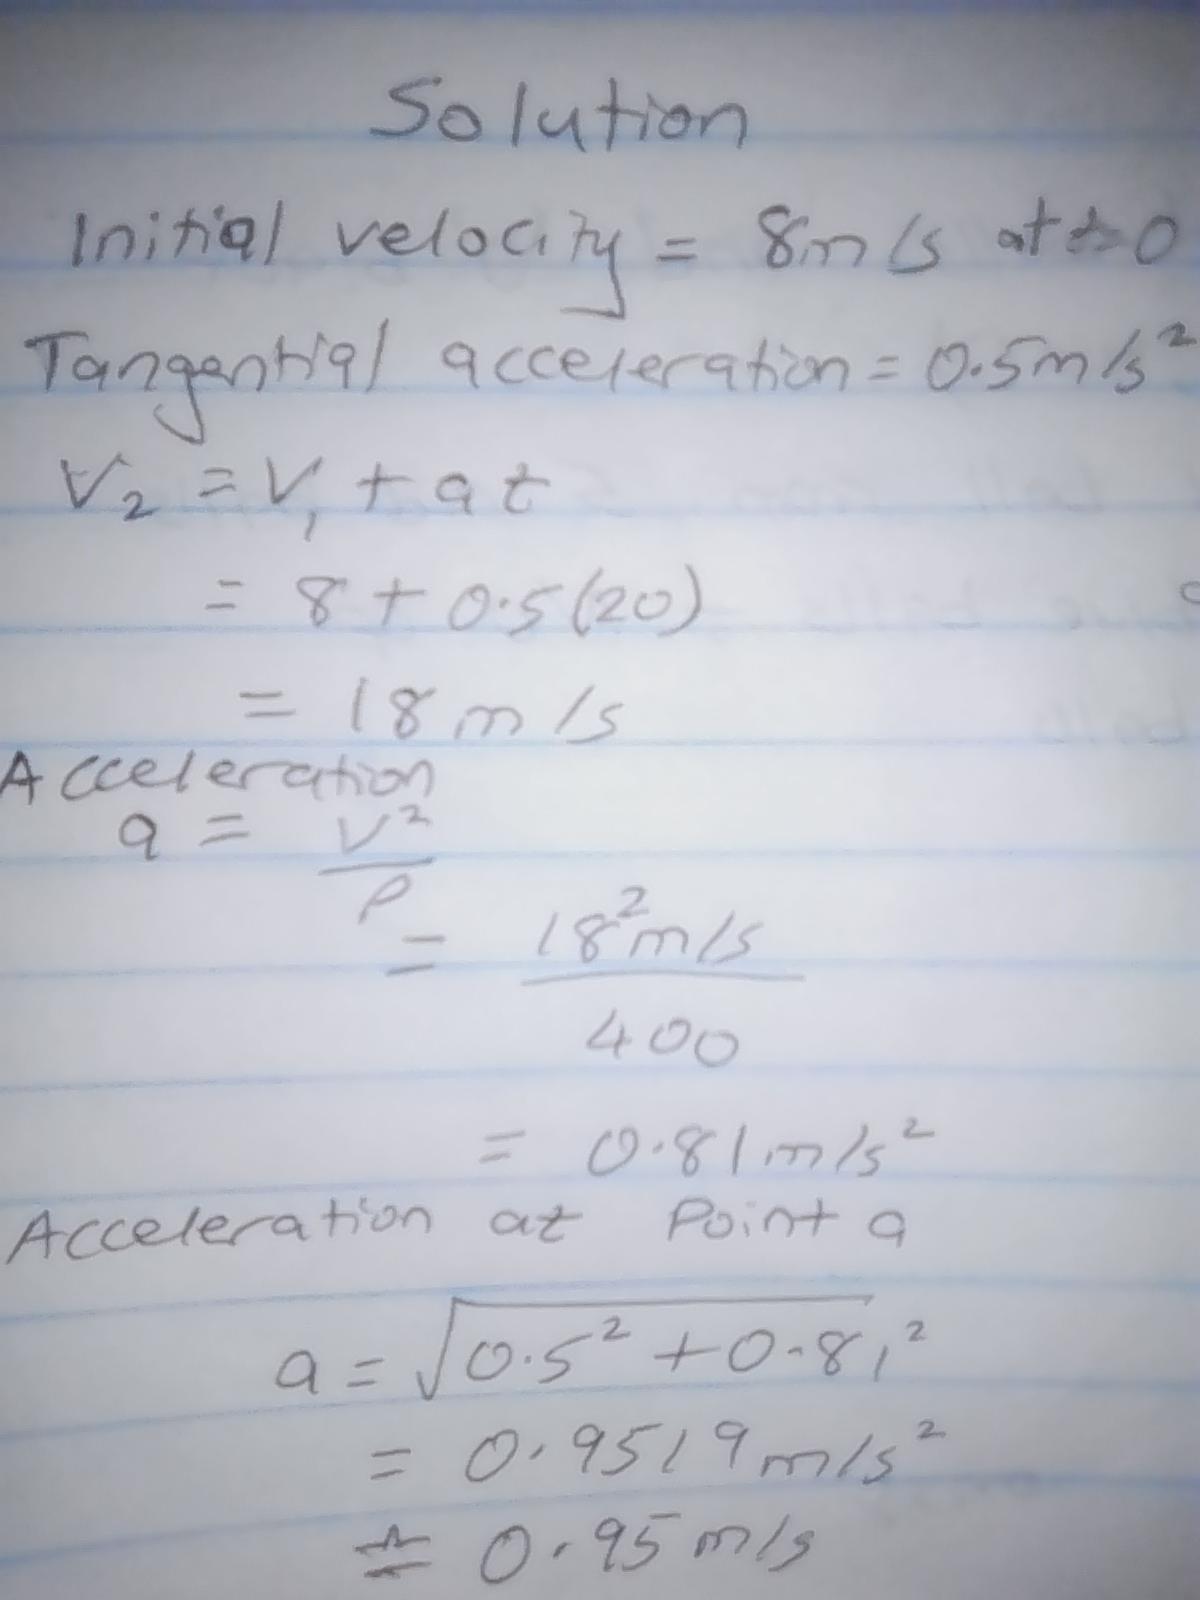 Solution
Initial velocity = 8m/s at t=0
Tangential acceleration = 0.5m/s²
V₂ = V₁ + at
= 8 + 0.5(20)
= 18m/s
Acceleration
a = V²/ρ
= 18²m/s/400
= 0.81m/s²
Acceleration at Point a
a = √0.5² + 0.81²
= 0.9519m/s²
≐ 0.95m/s